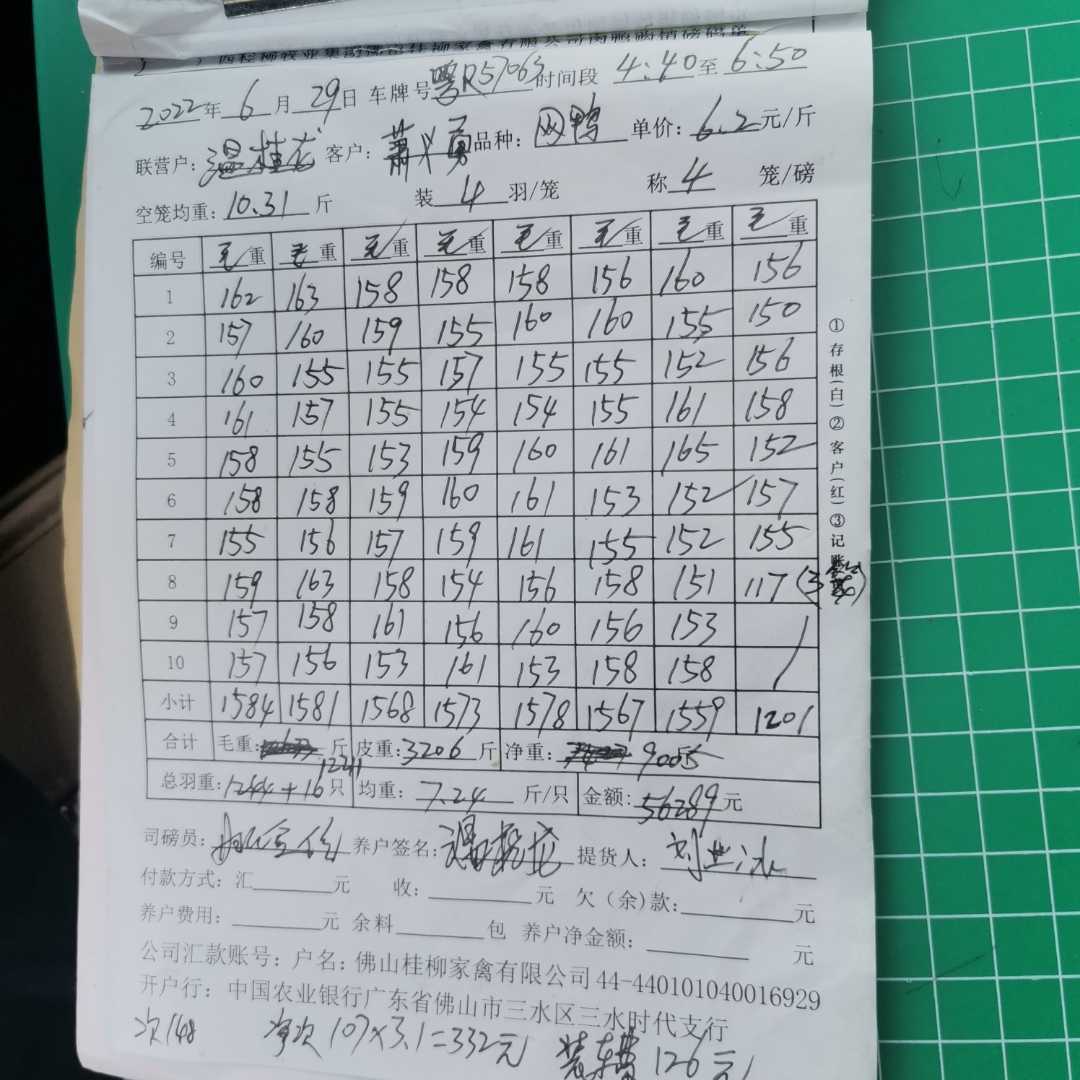 2022年 6 月 29日 车牌号粤R57063时间段 4:40至 6:50
联营户: 温桂龙 客户: 萧义勇 品种: 网鸭 单价: 6.2元/斤
空笼均重: 10.31 斤 装 4 羽/笼 称 4 笼/磅
编号 毛重 毛重 毛重 毛重 毛重 毛重 毛重 毛重
1 162 163 158 158 158 156 160 156
2 157 160 159 155 160 160 155 150
3 160 155 155 157 155 155 152 156
4 161 157 155 154 154 155 161 158
5 158 155 153 159 160 161 165 152
6 158 158 159 160 161 153 152 157
7 155 156 157 159 161 155 152 155
8 159 163 158 154 156 158 151 117 (3
9 157 158 161 156 160 156 153 /
10 157 156 153 161 153 158 158 /
小计 1584 1581 1568 1573 1578 1567 1559 1201
合计 毛重: 12211 斤 皮重: 3206 斤 净重: 9005
总羽重: 1244+16 只 均重: 7.24 斤/只 金额: 56289元
司磅员: 养户签名: 提货人: 刘
付款方式: 汇 元 收: 元 欠（余）款: 元
养户费用: 元 余料 包 养户净金额: 元
公司汇款账号: 户名: 佛山桂柳家禽有限公司 44-440101040016929
开户行: 中国农业银行广东省佛山市三水区三水时代支行
次148 净次 107×3.1=332元 装车费 126元
①存根(白)②客户(红)③记账